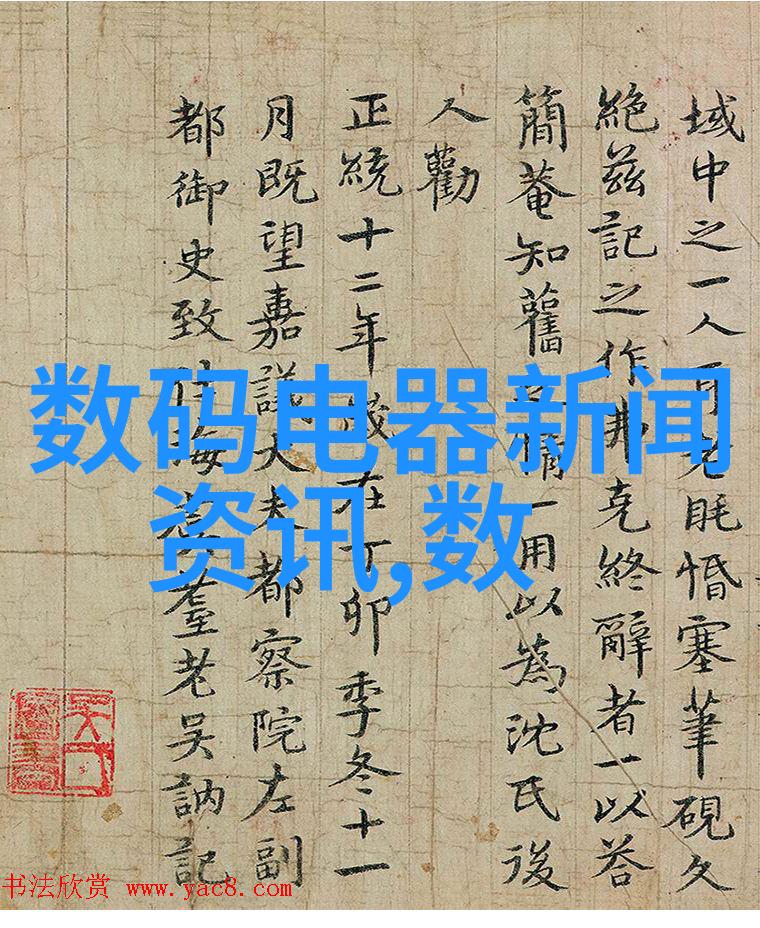 域中之一人耳老眊惛塞筆硯久
絶兹記之作弗克終辭者一以荅
簡菴知舊之情一用以為沈氏後
人勸
正統十二年歲在丁卯季冬十一
月既望嘉議大夫都察院左副
都御史致仕海虞耋老吴訥記
数码电器新闻
资讯,数
书法欣赏 www.yac8.com